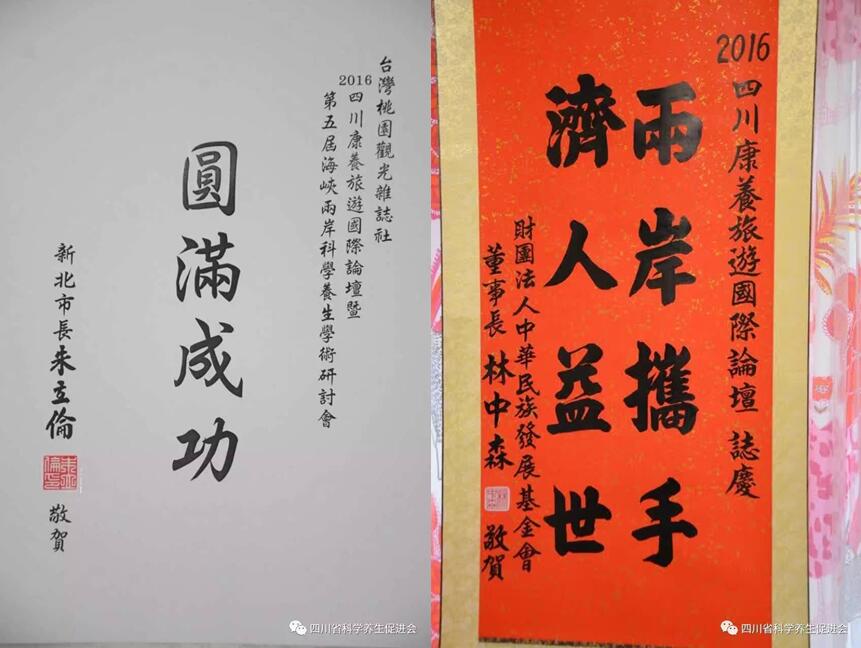 台灣桃園觀光雜誌社
2016四川康養旅遊國際論壇暨
第五屆海峽兩岸科學養生學術研討會
圓滿成功
新北市長朱立倫 敬賀
四川省科学养生促进会
2016四川康養旅遊國際論壇 誌慶
兩岸攜手
濟人益世
財團法人中華民族發展基金會
董事長 林中森 敬賀
四川省科学养生促进会